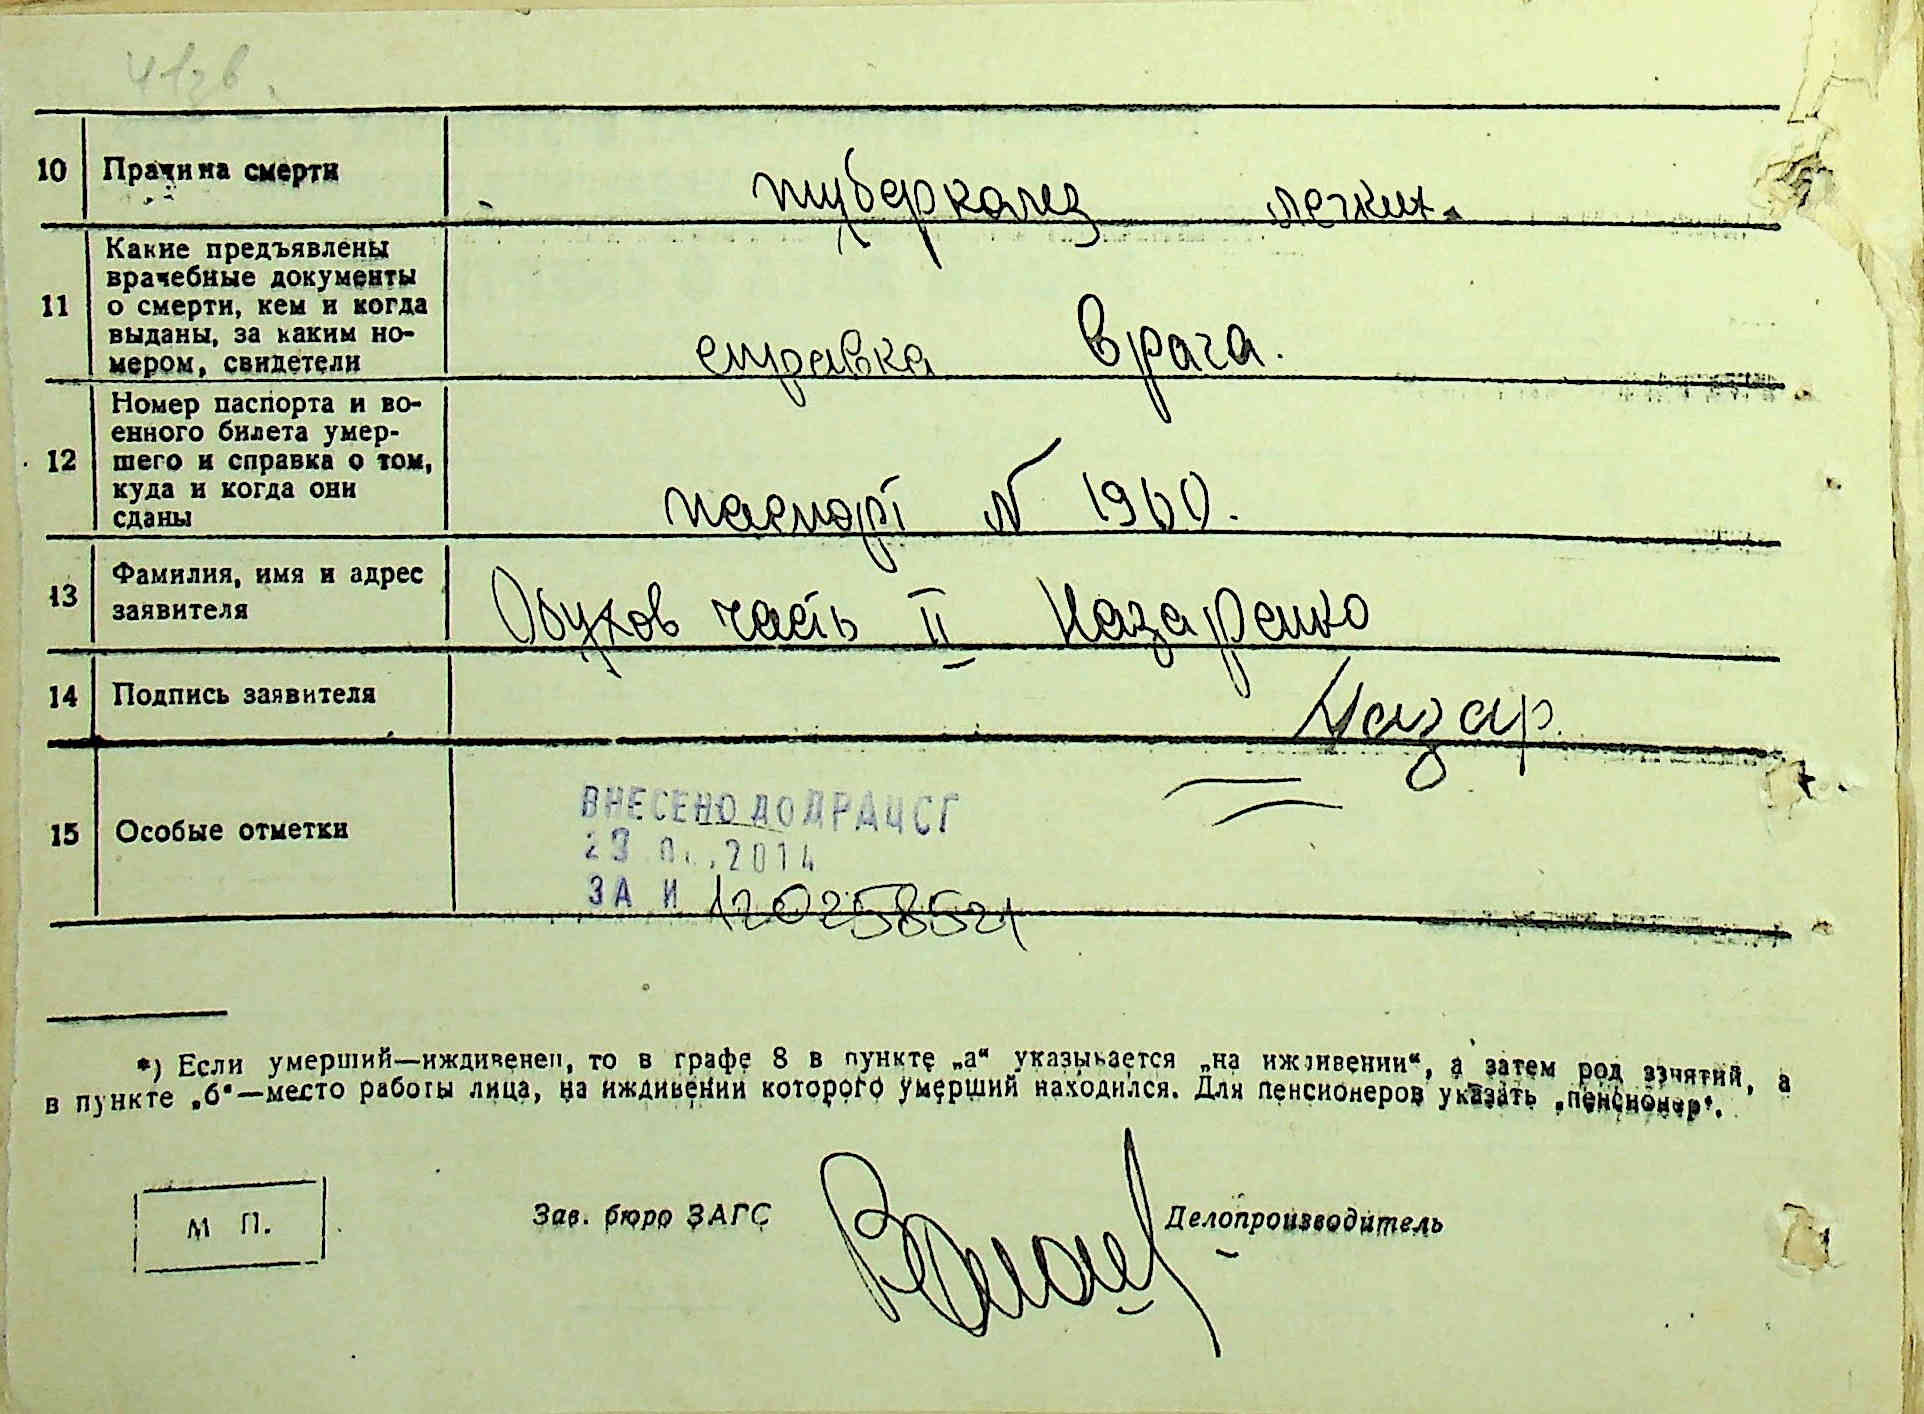 10 Причина смерти туберкулез легких.
11 Какие предъявлены
врачебные документы
о смерти, кем и когда
выданы, за каким но-
мером, свидетели
справка врача.
12 Номер паспорта и во-
енного билета умер-
шего и справка о том,
куда и когда они
сданы
паспорт N 1960.
13 Фамилия, имя и адрес
заявителя
Обухов часть II Назаренко
14 Подпись заявителя Назар.
15 Особые отметки
ВНЕСЕНО ДО ДРАЦСГ
2014
ЗА И
*) Если умерший—иждивенец, то в графе 8 в пункте „а“ указывается „на иждивении“, а затем род занятий, а
в пункте „б“—место работы лица, на иждивении которого умерший находился. Для пенсионеров указать „пенсионер“.
М П.
Зав. бюро ЗАГС Делопроизводитель